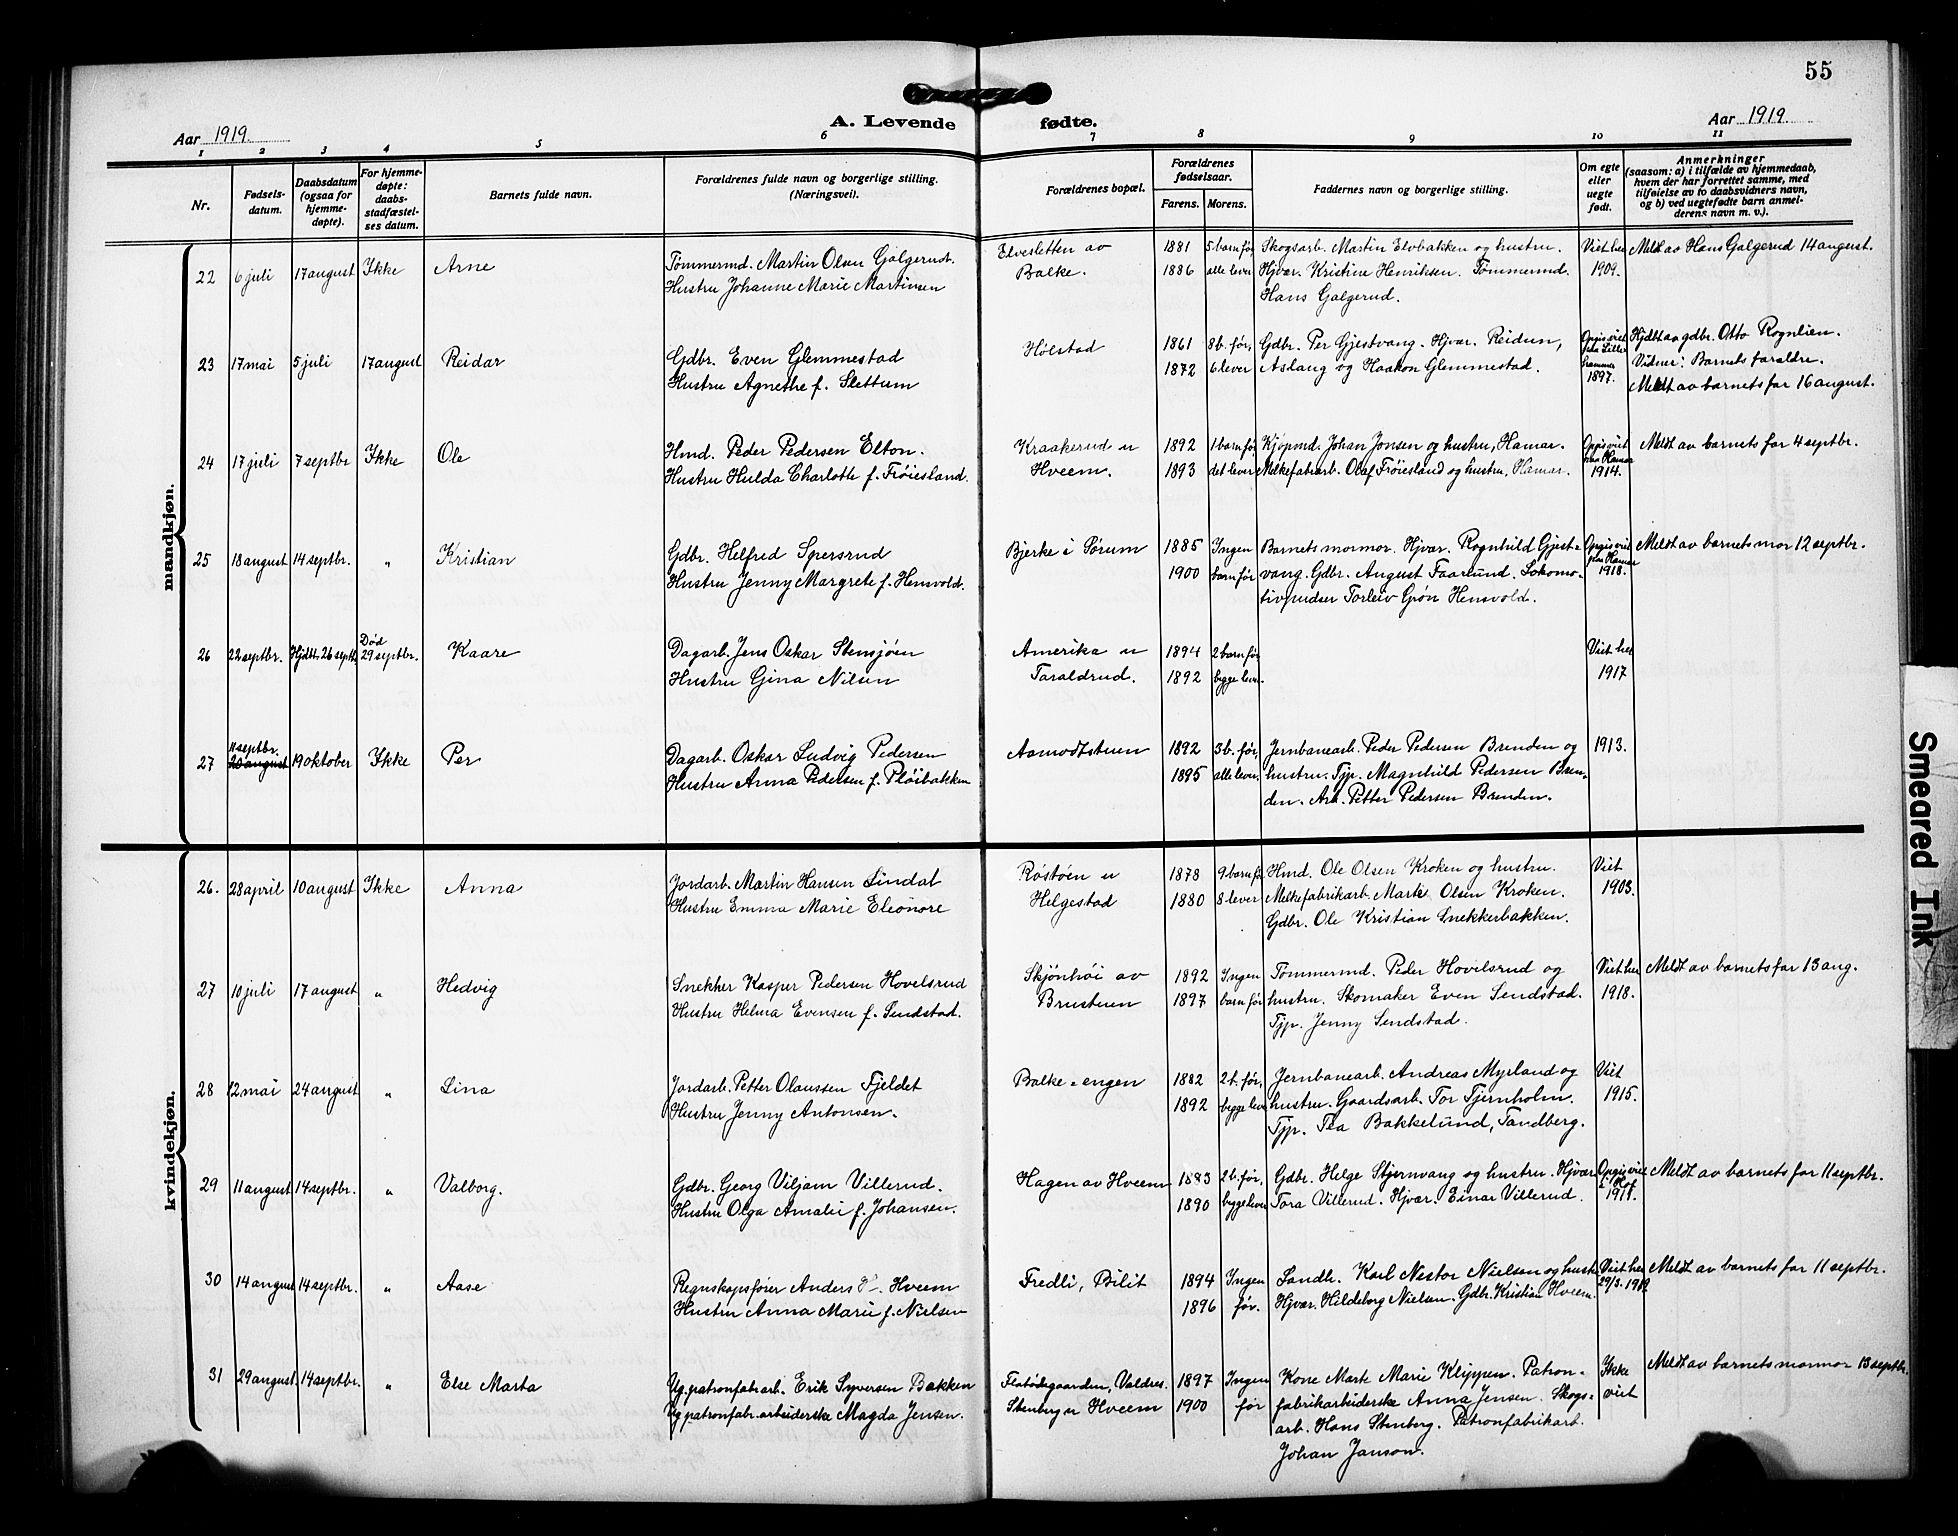 55
A. Levende fødte.
Aar 1919.
Aar 1919.
1 2 3 4 5 6 7 8 9 10 11
Nr.
Fødsels-
datum.
Daabsdatum
(ogsaa for
hjemme-
døpte).
For hjemme-
døpte:
daabs-
stadfæstel-
ses datum.
Barnets fulde navn.
Forældrenes fulde navn og borgerlige stilling.
(Næringsvei).
Forældrenes bopæl.
Forældrenes
fødselsaar.
Farens. Morens.
Faddernes navn og borgerlige stilling.
Om egte
eller
uegte
født.
Anmerkninger
(saasom: a) i tilfælde av hjemmedaab,
hvem der har forrettet samme, med
tilføielse av to daabsvidners navn,
og b) ved uegtefødte barn anmel-
derens navn m. v.).
mandkjøn.
22 6 juli 17 august Ikke Arne
Tømmermd. Martin Olsen Galgerud.
Hustru Johanne Marie Martinsen
Elvesletten av
Balke.
1881 5 barn før,
1886 alle lever
Skogsarb. Martin Elvbakken og hustru.
Hjvar. Kristine Henriksen. Tømmermd.
Hans Galgerud.
Viet her
1909.
Meldt av Hans Galgerud 14 august.
23 17 mai 5 juli 17 august Reidar
Gdbr. Even Glemmestad
Hustru Agnethe f. Slettum
Hølstad
1861 8 b. før,
1872 6 lever
Gdbr. Per Gjestvang. Hjvar. Reidun,
Aslaug og Haakon Glemmestad.
Opgis viet
paa Lille
hammer
1897.
Hjdbt av gdbr. Otto Rognlien.
Vidner: Barnets forældre.
Meldt av barnets far 16 august.
24 17 juli 7 septbr Ikke Ole
Hmd. Peder Pedersen Elton.
Hustru Hulda Charlotte f. Frøiesland.
Kraakerud u
Hveem.
1892 1 barn før,
1893 det lever
Kjøpmd. Johan Jonsen og hustru, Hamar.
Melkefabarb. Olaf Frøiesland og hustru, Hamar.
Opgis viet
paa Hamar
1914.
Meldt av barnets far 4 septbr.
25 18 august 14 septbr. " Kristian
Gdbr. Helfred Spersrud
Hustru Jenny Margrete f. Hensvold.
Bjerke i Sørum
1885 Ingen
1900 barn før
Barnets mormor. Hjvar. Rognhild Gjest-
vang. Gdbr. August Faarlund. Lokomo-
tivpudser Torleiv Grøn Hensvold.
Opgis viet
paa Hamar
1918.
Meldt av barnets mor 12 septbr.
26 22 septbr. Hjdbt. 26 septb.
Død
29 septbr. Kaare
Dagarb. Jens Oskar Stensjøen
Hustru Gina Nilsen
Amerika u
Taraldrud.
1894 2 barn før
1892 begge lever.
Viet her
1917
27 11 septbr.
20 august 19 oktober Ikke Per
Dagarb. Oskar Ludvig Pedersen
Hustru Anna Pedersen f. Pløibakken
Aamodtstuen
1892 3 b. før,
1895 alle lever.
Jernbanearb. Peder Pedersen Brenden og
hustru. Tjp. Magnhild Pedersen Bren-
den. Arb. Petter Pedersen Brenden.
1913.
kvindekjøn.
26. 28 april 10 august Ikke Anna
Jordarb. Martin Hansen Lindal
Hustru Emma Marie Eleonore
Røstøen u
Helgestad
1878 9 barn før
1880 8 lever
Hmd. Ole Olsen Kroken og hustru.
Melkefabrikarb. Marte Olsen Kroken.
Gdbr. Ole Kristian Snekkerbakken.
Viet
1903.
27 10 juli 17 august " Hedvig
Snekker Kasper Pedersen Hovelsrud
Hustru Helma Evensen f. Sendstad.
Skjønhøi av
Brustuen
1892 Ingen
1897 barn før
Tømmermd. Peder Hovelsrud og
hustru. Skomaker Even Sendstad.
Tjp. Jenny Sendstad.
Viet her
1918.
Meldt av barnets far 13 aug.
28 12 mai 24 august " Lina
Jordarb. Petter Olaussen Fjeldet
Hustru Jenny Antonsen.
Balke-engen
1882 2 b. før,
1892 begge lever
Jernbanearb. Andreas Myrland og
hustru. Gaardsarb. Tor Tjernholm.
Tjp. Tea Bakkelund, Tandberg.
Viet
1915.
29 11 august 14 septbr. " Valborg.
Gdbr. Georg Viljam Villerud.
Hustru Olga Amalie f. Johansen.
Hagen av Hveem
1883 2 b. før,
1890 begge lever
Gdbr. Helge Stjernvang og hustru. Hjvar
Tora Villerud. Hjvar. Einar Villerud.
Opgis viet
i Hof
1911.
Meldt av barnets far 11 septbr.
30 14 august 14 septbr. " Aase
Regnskapsfører Anders Hveem
Hustru Anna Marie f. Nielsen
Fredli, Bilit
1894 Ingen
1896 før.
Landh. Karl Nestor Nielsen og hustr.
Hjvar. Hildeborg Nielsen. Gdbr. Kristian Hveem.
Viet her
29/3. 1919.
Meldt av barnets far 11 septbr.
31 29 august. 14 septbr. " Else Marta
Ug. patronfab.arb. Erik Syversen Bakken
Ug. patronfabr.arbeiderske Magda Jensen.
Flatødegaarden, Valdres.
Stenberg u Hveem
1897 Ingen
1900 før
Kone Marte Marie Klippen. Patron-
fabrikarbeiderske Anna Jensen. Skogs-
arb. Hans Stenberg. Patronfabrikarb.
Johan Janson.
Ikke
viet
Meldt av barnets mormor 13 septbr.
Smeared Ink